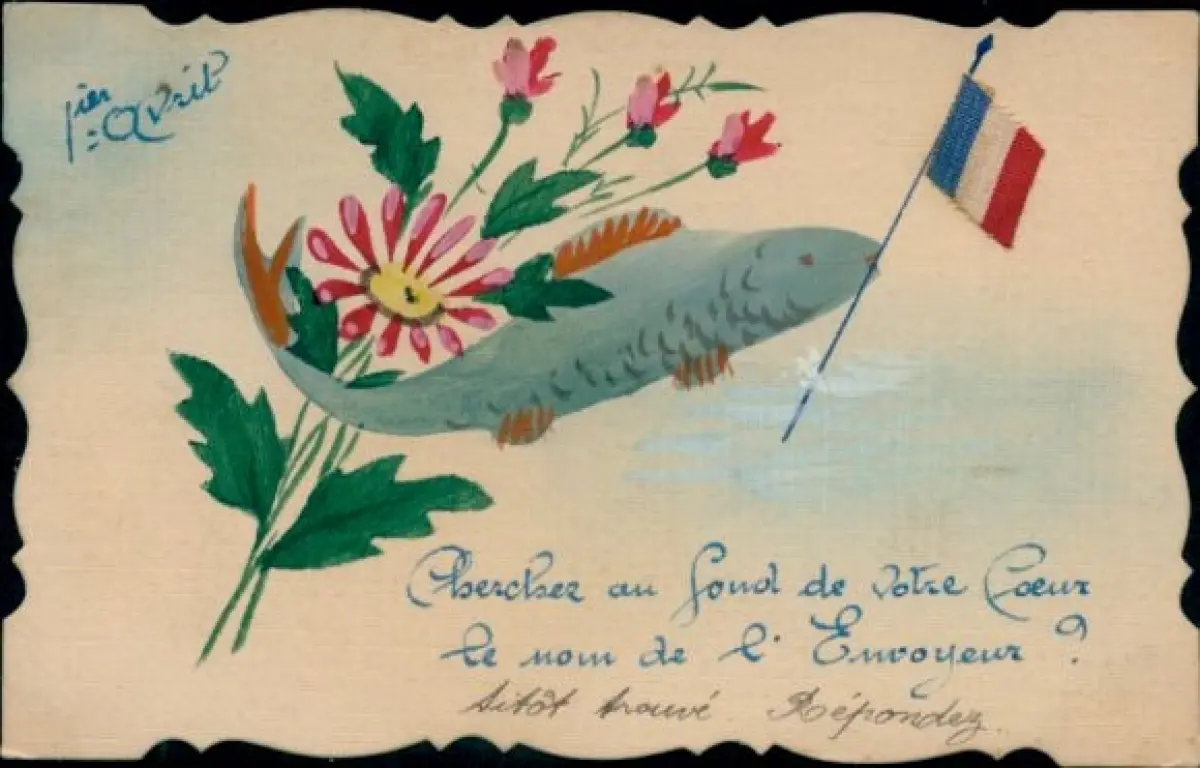 1ier Avril
Cherchez au fond de votre Cœur
le nom de l'Envoyeur ?
sitôt trouvé. Répondez.